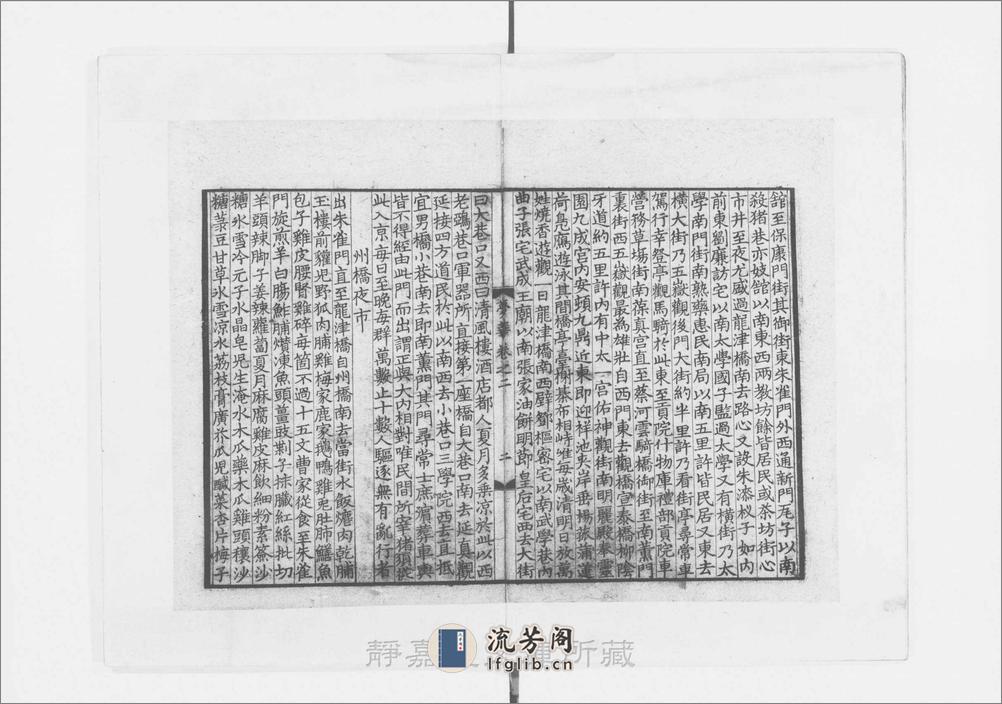 館至保康門街其御街東朱雀門外西通新門瓦子以南
殺猪巷亦妓館以南東西兩教坊餘皆居民或茶坊街心
市井至夜尤盛過龍津橋南去路心又設朱漆杈子如内
前東劉廉訪宅以南太學國子監過太學又有橫街乃太
學南門街南熟藥惠民南局以南五里許皆民居又東去
橫大街乃五嶽觀後門大街約半里許乃看街亭尋常車
駕行幸登亭觀馬騎於此東至貢院什物庫禮部貢院車
營務草場街南葆真宫直至蔡河雲騎橋御街至南薫門
裏街西五嶽觀最為雄壯自西門東去觀橋宣泰橋柳陰
牙道約五里許内有中太一宫佑神觀街南明麗殿奉靈
園九成宫内安頓九鼎近東即迎祥池夾岸垂楊菰蒲蓮
荷鳧鴈遊泳其間橋亭臺榭棊布相峙唯每歳清明日放萬
姓燒香遊觀一日龍津橋南西壁鄧樞密宅以南武學巷内
曲子張宅武成王廟以南張家油餅明節皇后宅西去大街
夢華 卷之二
二
曰大巷口又西曰清風樓酒店都人夏月多乗凉於此以西
老鵶巷口軍器所直接第一座橋自大巷口南去延真觀
延接四方道民於此以南西去小巷口三學院西去直抵
宜男橋小巷南去即南薫門其門尋常士庶殯葬車輿
皆不得經由此門而出謂正與大内相對唯民間所宰猪須從
此入京每日至晚每群萬數止十數人驅逐無有亂行者
州橋夜市
出朱雀門直至龍津橋自州橋南去當街水飯爊肉乾脯
玉樓前獾児野狐肉脯雞梅家鹿家鵝鴨雞兎肚肺鱔魚
包子雞皮腰腎雞碎每箇不過十五文曹家從食至朱雀
門旋煎羊白腸鮓脯㸆凍魚頭薑豉𠞰子抹臟紅絲批切
羊頭辣脚子姜辣蘿蔔夏月麻腐雞皮麻飲細粉素簽沙
糖氷雪冷元子水晶皂児生淹水木瓜藥木瓜雞頭穰沙
糖菉豆甘草氷雪凉水荔枝膏廣芥瓜児醎菜杏片梅子
靜嘉 所藏
流芳阁
lfglib.cn